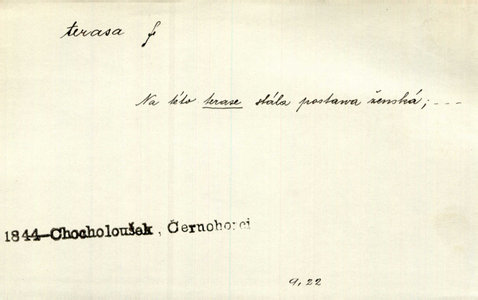 terasa f
Na této terase stála postawa ženská; ---
1844-Chocholoušek, Černohorci
9, 22